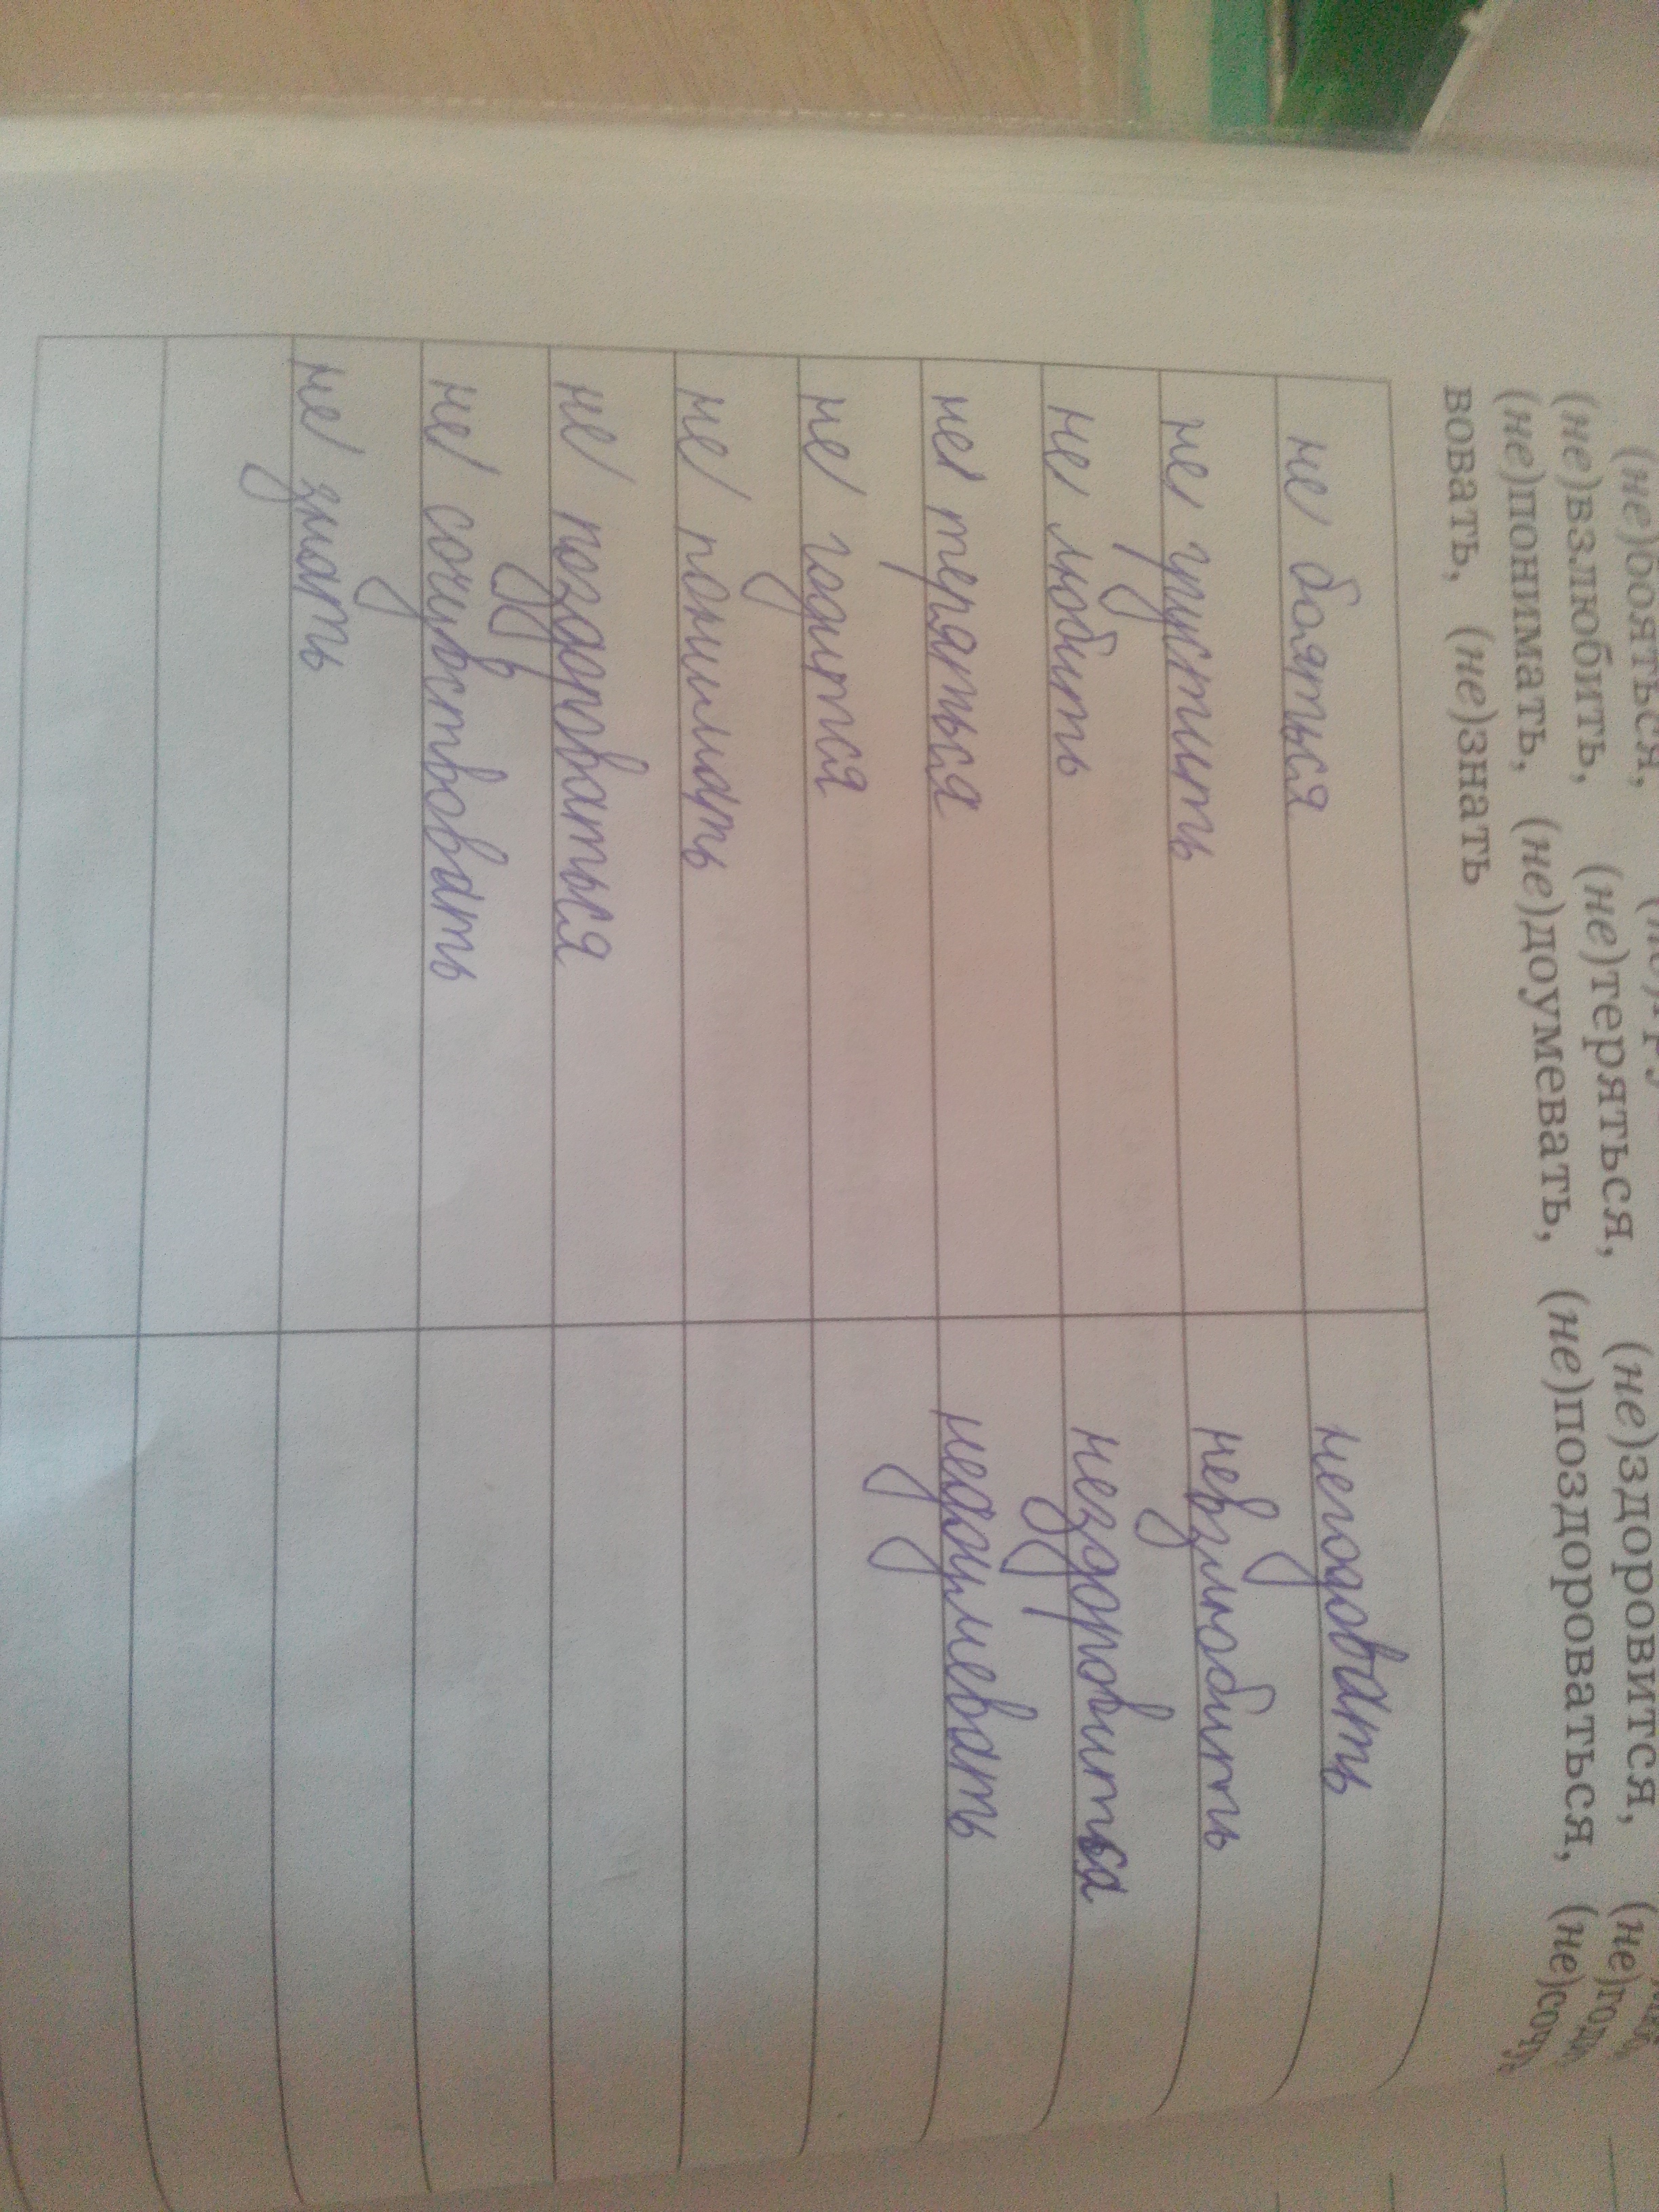 (не)бояться,
(не)взлюбить, (не)теряться, (не)здоровится,
(не)понимать, (не)доумевать, (не)поздороваться, (не)сочув
вовать, (не)знать
не бояться негодовать
не грустить невзлюбить
не любить нездоровится
не теряться недоумевать
не годится
не понимать
не поздороваться
не сочувствовать
не знать